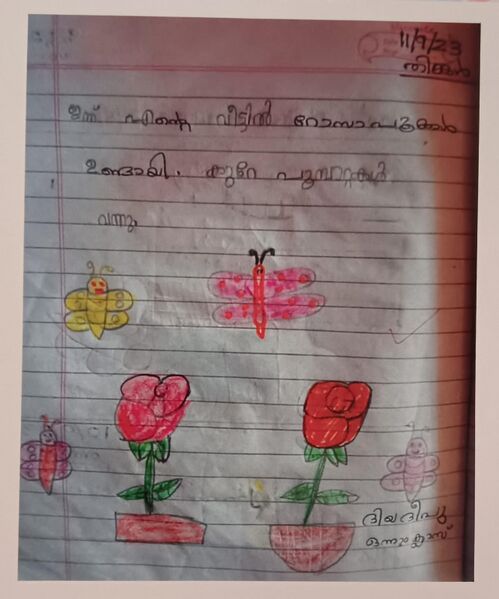 11/9/23
തിങ്കൾ
ഇന്ന് എന്റെ വീട്ടിൽ റോസാപൂക്കൾ
ഉണ്ടായി. കുറേ പൂമ്പാറ്റകൾ
വന്നു.
ദിയ ദീപു
ഒന്നാം ക്ലാസ്